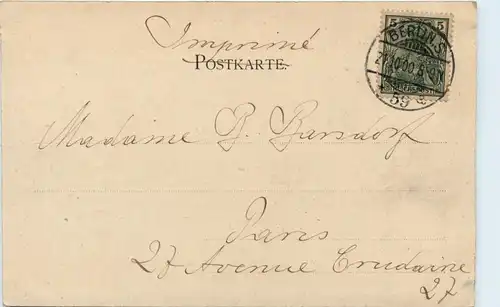 Imprimé
POSTKARTE.
5 5
BERLIN S.
59 a
Madame B. Barsdorf
Paris
27 Avenue Trudaine
27